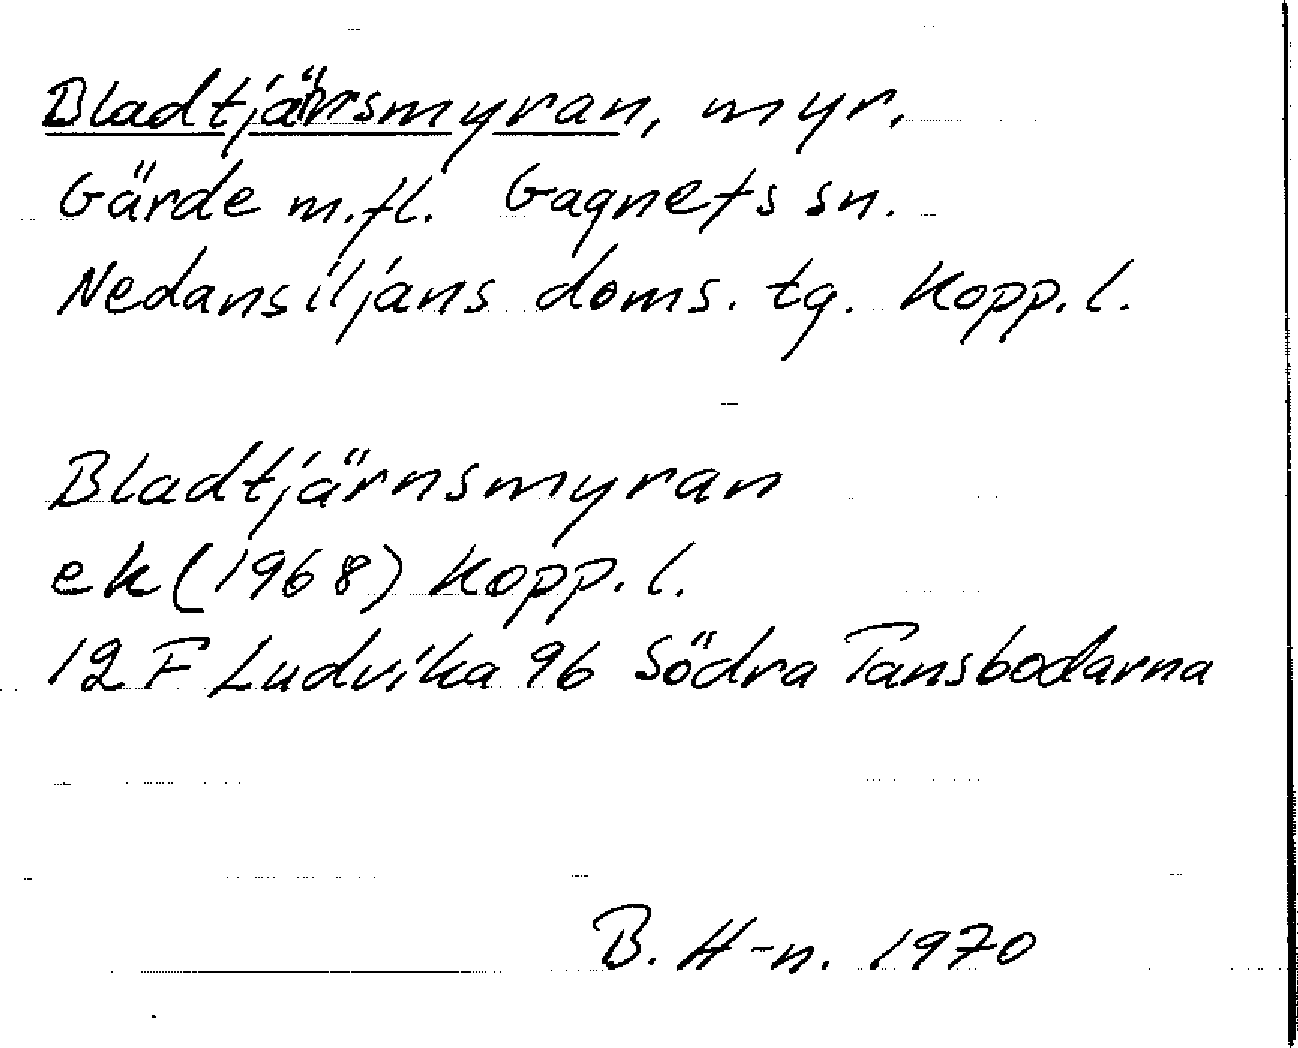 Bladtjärnsmyran, myr.
Gärde m.fl. Gagnefs sn.
Nedansiljans doms. tg. Kopp. l.
Bladtjärnsmyran
ek (1968) Kopp. l.
12 F Ludvika 96 Södra Tansbodarna
B. H-n. 1970